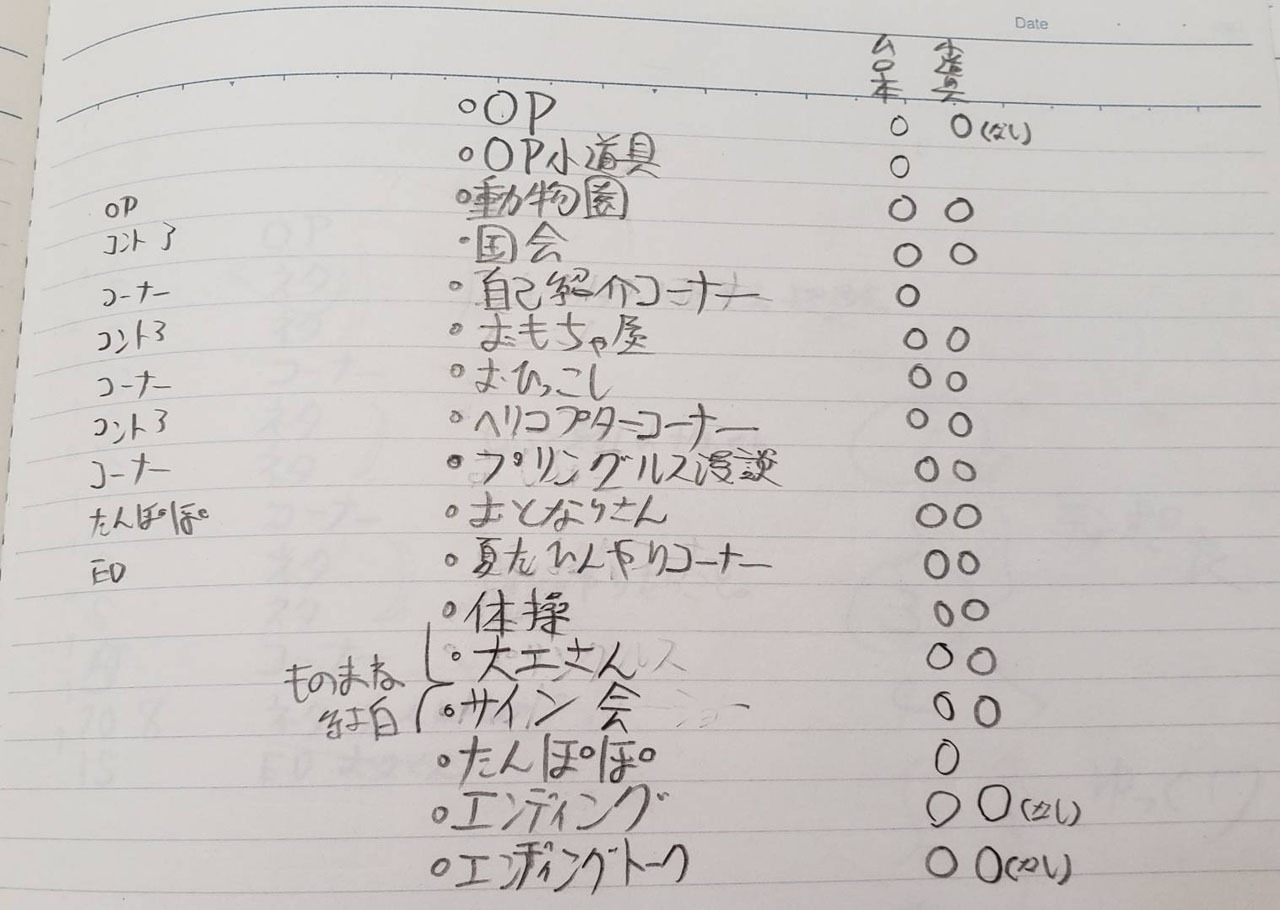 Date
台本 小道具
・OP ○ ○(なし)
・OP小道具 ○
OP ・動物園 ○ ○
コント3 ・国会 ○ ○
コーナー ・自己紹介コーナー ○
コント3 ・おもちゃ屋 ○ ○
コーナー ・おひっこし ○ ○
コント3 ・ヘリコプターコーナー ○ ○
コーナー ・プリングルス漫談 ○ ○
たんぽぽ ・おとなりさん ○ ○
ED ・夏だひんやりコーナー ○ ○
・体操 ○ ○
ものまね ・大工さん ○ ○
紅白 ・サイン会 ○ ○
・たんぽぽ ○
・エンディング ○ ○(なし)
・エンディングトーク ○ ○(なし)